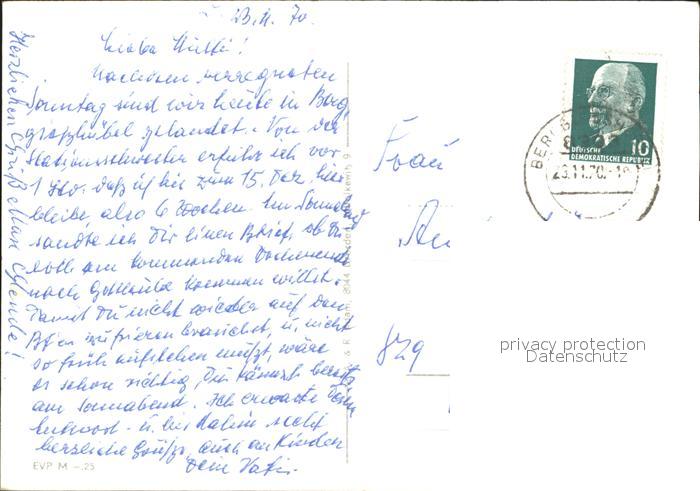 23.11.70.
Liebe Mutti!
Nach dem verregneten
Sonntag sind wir heute in Berg
gießhübel gelandet. Von der
Stationsschwester erfuhr ich vor
1 Std. daß ich bis zum 15. Dez. hier
bleibe also 6 Wochen. Am Sonnabend
sandte ich Dir einen Brief, ob Du
am kommenden Wochenende
nach Gottleuba kommen willst.
Damit Du nicht wieder auf dem
frieren brauchst, u. nicht
so früh aufstehen mußt, wäre
es schon richtig, Du kämst bereits
am Sonnabend. Ich erwarte Deine
Antwort u. bis dahin recht
herzliche Grüße, auch an Kinder
Dein Vati.
Herzlichen Gruß
EVP M -.25
Frau
829
DEUTSCHE
DEMOKRATISCHE REPUBLIK
10
23.11.70
privacy protection
Datenschutz